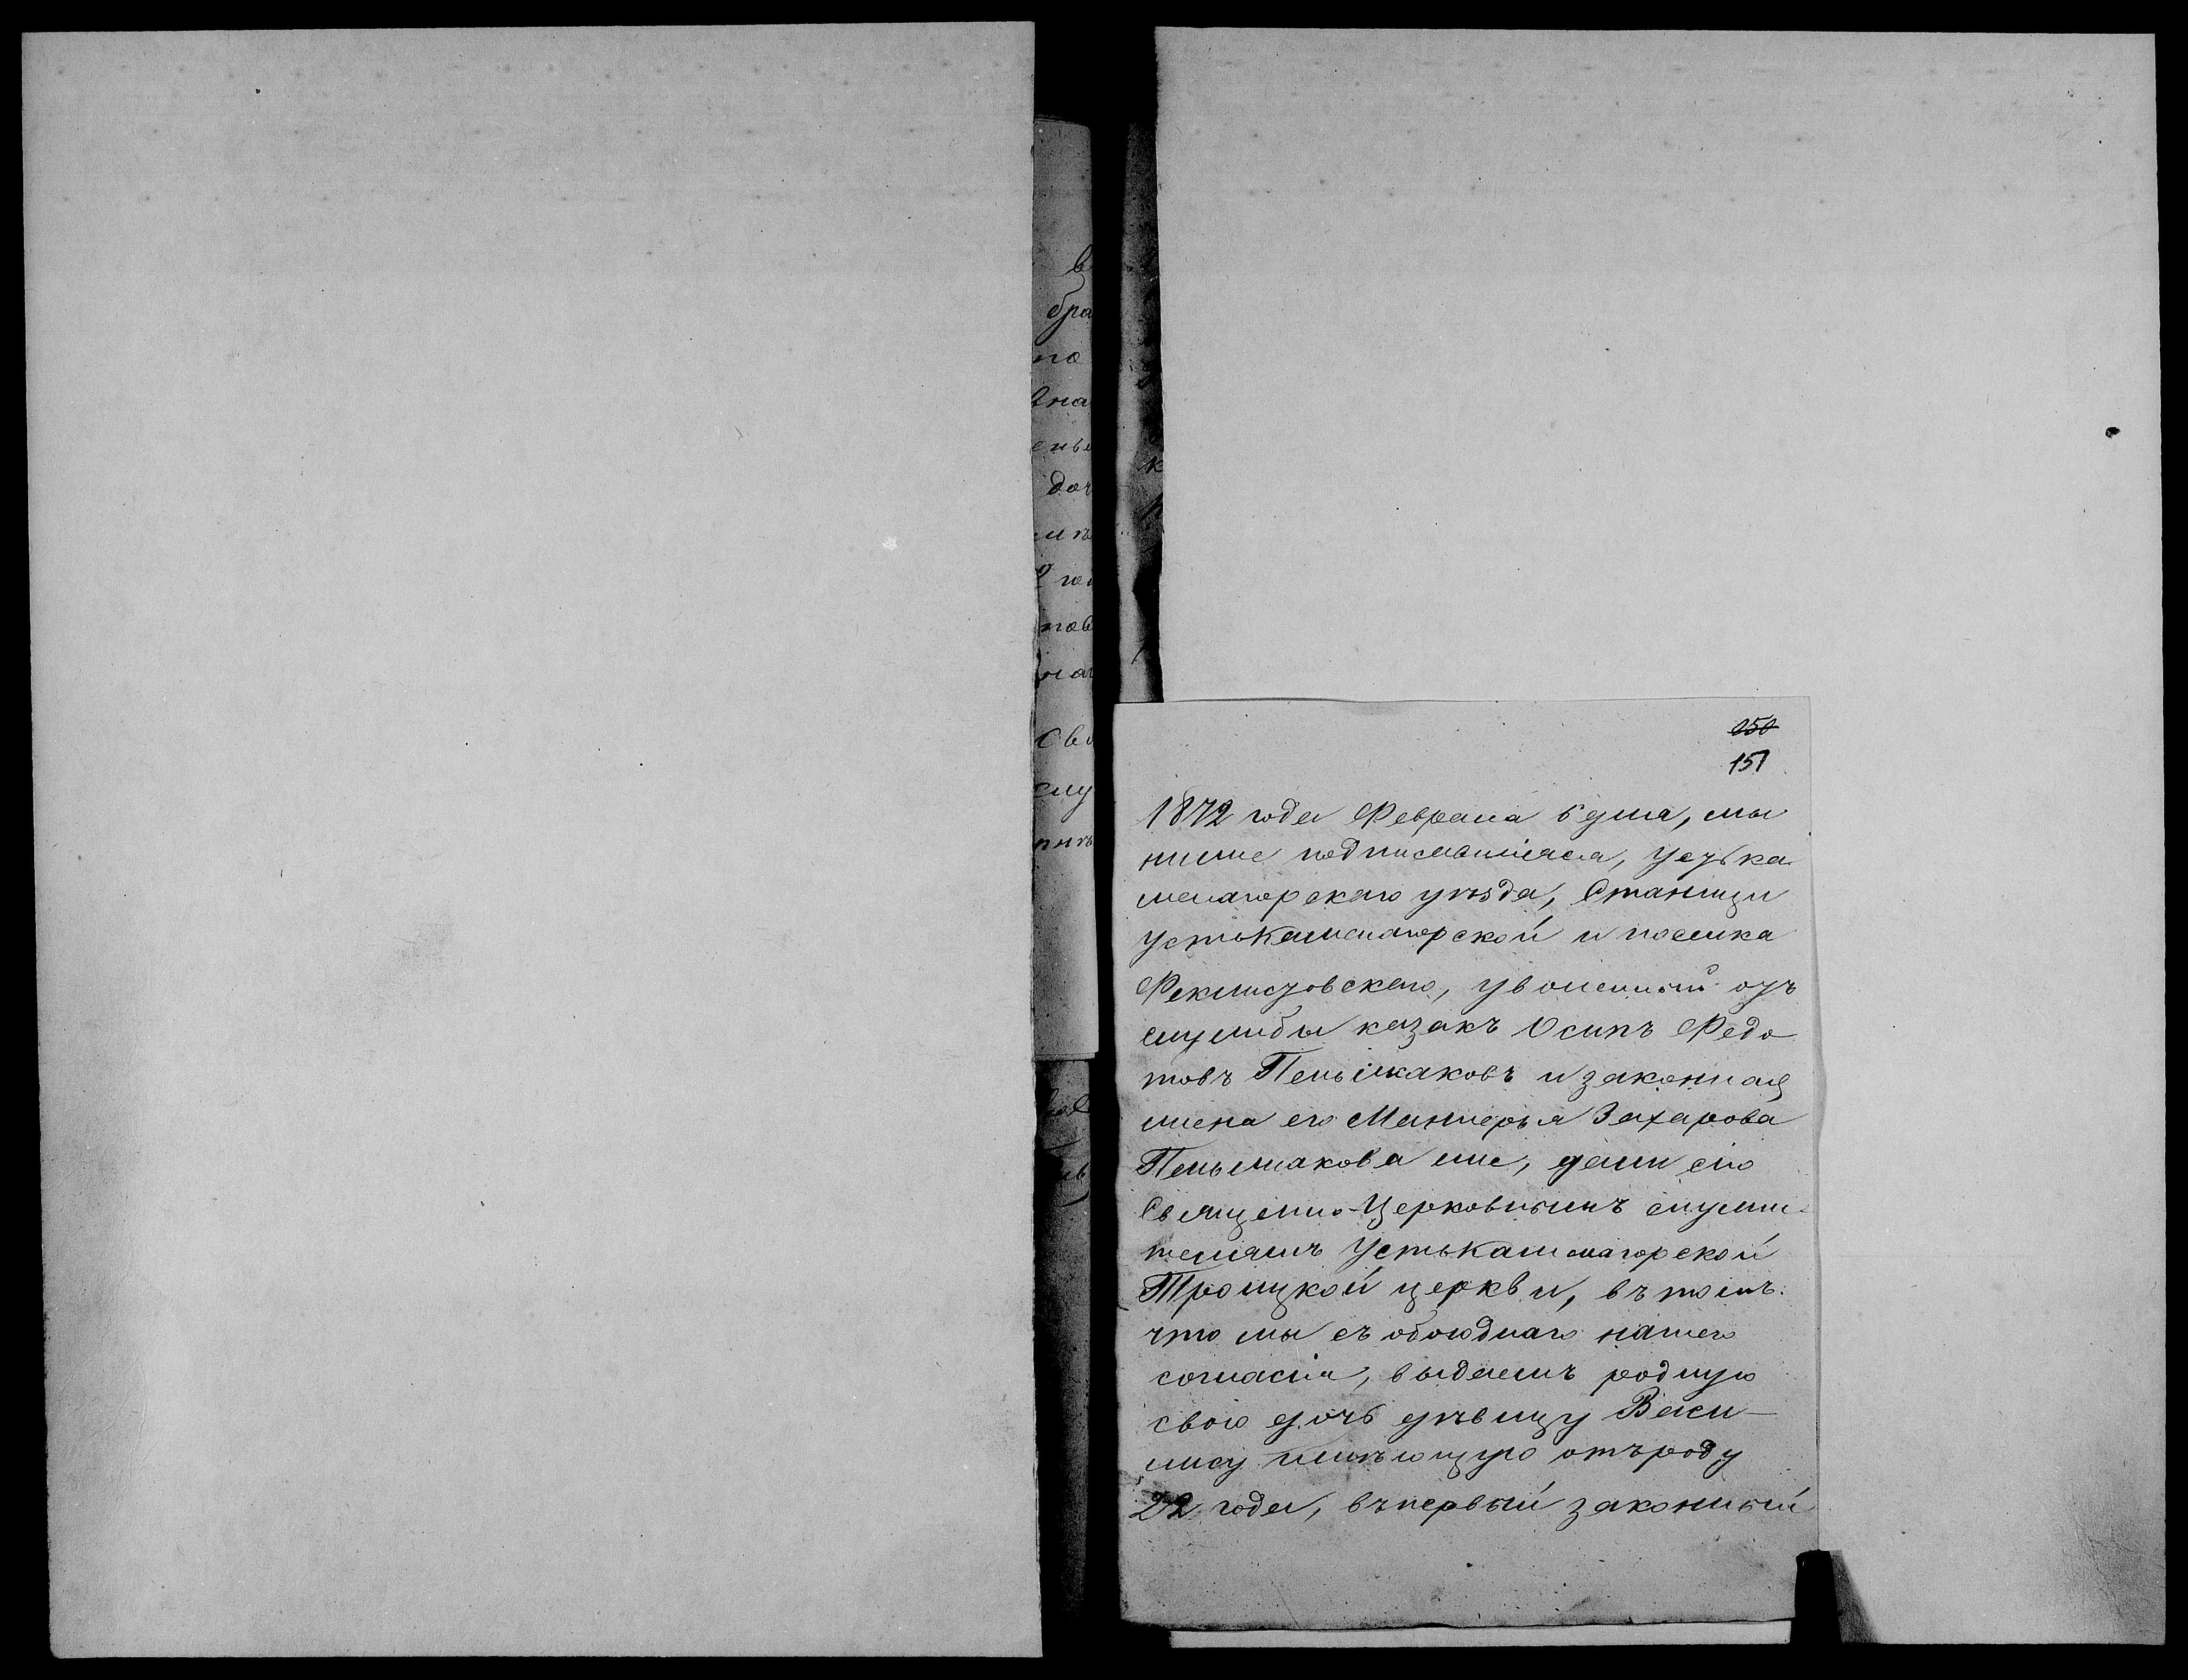 в
бра
по
зна
сня
доч
имѣ
2 го
пов
наг
Сви
слу
пинъ
150
151
1872 года Февраля 5 дня, мы
ниже подписавшіяся, Усть ка
меногорскаго уѣзда, Станицы
Устькаменогорской и поселка
Феклистовскаго, уволенный отъ
службы казакъ Осипъ Федо
товъ Пеньшкаковъ и законная
жена его Манперья Захарова
Пеньшкакова же, дали сію
Священно-Церковнымъ служи
телямъ Устькаменогорской
Троицкой церкви, въ томъ:
что мы съ обоюднаго нашего
согласія, выдаемъ родную
свою дочь дѣвицу Васи-
лису имѣющую отъ роду
22 года, въ первый законный